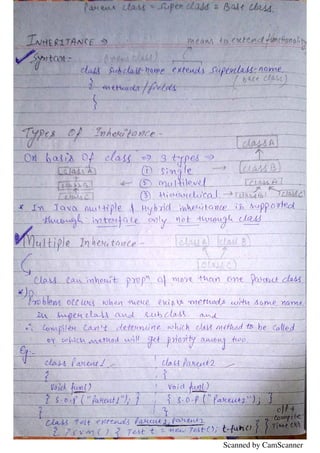 Parent class = Super class = Base class.
INHERITANCE → means to extend functionality
Syntax -
class Subclass-name extends Superclass-name
{ methods/fields (base class)
}
Types Of Inheritance -
class A
On basis Of class → 3 types →
class A ① Single → class B
class B ② multilevel class A
class C ③ Hierarchical → class B class C
* In Java multiple & Hybrid inheritance is supported
through interface only not through class
Multiple Inheritance - class A class B
class C
Class can inherit propⁿ of more than one Parent class
Problem occurs when there exists methods with same name
in superclass and subclass and
∴ Compiler can't determine which class method to be called
or which method will get priority among two.
Eg:-
class Parent1 class Parent2
{ {
void fun() void fun()
{ S.o.p("Parent1"); } { S.o.p("Parent2"); }
} }
class Test extends Parent1, Parent2
o/p → Compile Time err
{ P s v m() { Test t = new Test(); t.fun() } }
Scanned by CamScanner